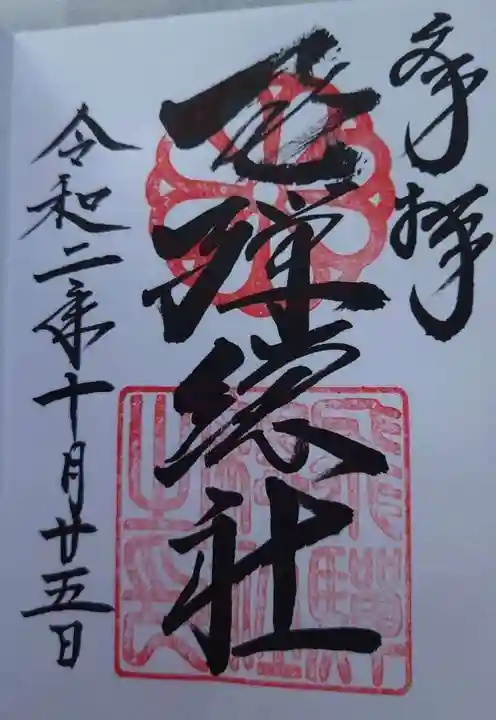 奉拝
飛騨総社
令和二年十月廿五日